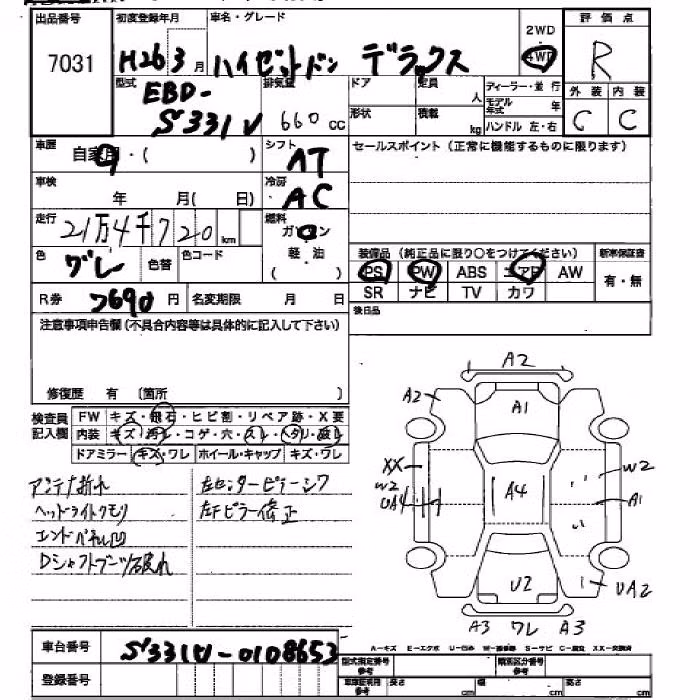 出品番号 初度登録年月 車名・グレード 2WD 評価点
7031 H26 3月 ハイゼットバン デラックス 4WD R
型式 排気量 ドア 定員 人 ディーラー・並行 外装 内装
EBD- モデル年式 年
S331V 660 cc 形状 積載 kg ハンドル 左・右 C C
車歴 自家用・( ) シフト AT セールスポイント(正常に機能するものに限ります)
車検 年 月( 日) 冷房 AC
走行 21万4千720 km 燃料 ガソリン
軽・油 装備品(純正品に限り○をつけてください) 新車保証書
色 グレー 色替 色コード PS PW ABS エアB AW 有・無
R券 7690円 名変期限 月 日 SR ナビ TV カワ
後日品
注意事項申告欄(不具合内容等は具体的に記入して下さい)
修復歴 有 〔箇所 〕
検査員記入欄 FW キズ・飛石・ヒビ割・リペア跡・X要
内装 キズ・汚れ・コゲ・穴・スレ・ヘタリ・破れ
ドアミラー キズ・ワレ ホイール・キャップ キズ・ワレ
アンテナ折れ 左センターピラーシワ
ヘッドライトクモリ 左Fピラー修正
エンドパネル凹
Dシャフトブーツ破れ
A2
A2 A1
XX W2
W2 A4 A1
UA4
U2 UA2
A3 ワレ A3
車台番号 S331V-0108653
A-キズ E-エクボ U-凹み W-補修跡 S-サビ C-腐食 XX-交換済
登録番号 型式指定番号 参考 類別区分番号 参考
車庫証明用参考 長さ cm 幅 cm 高さ cm